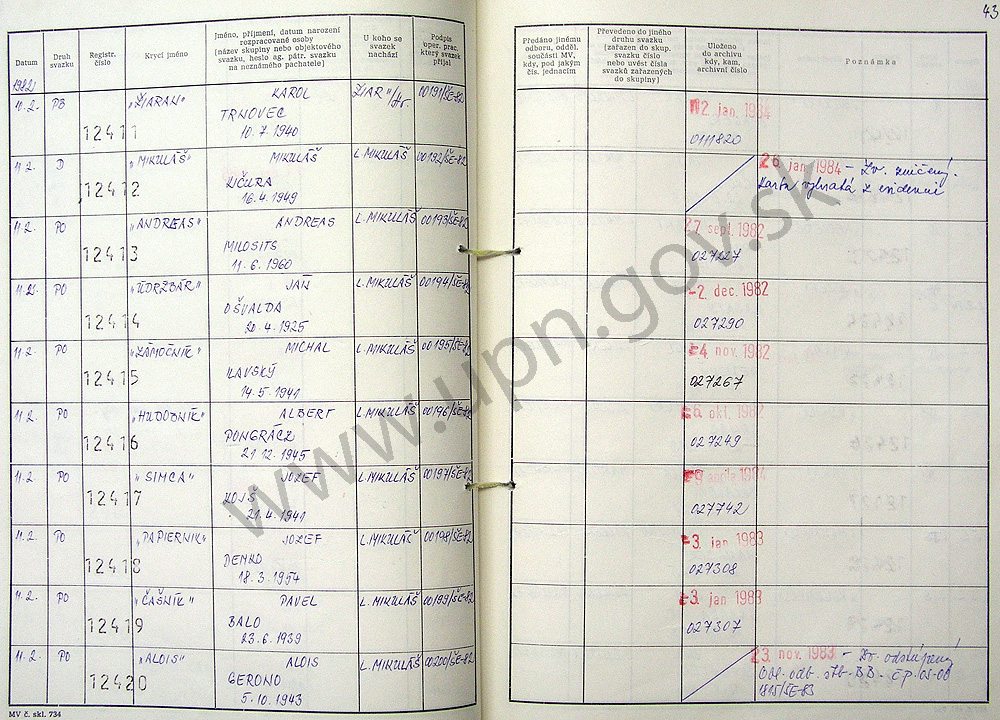 43
Datum
Druh svazku
Registr. číslo
Krycí jméno
Jméno, příjmení, datum narození
rozpracované osoby
(název skupiny nebo objektového
svazku, heslo ag. pátr. svazku
na neznámého pachatele)
U koho se
svazek
nachází
Podpis
oper. prac.
který svazek
přijal
Předáno jinému
odboru, odděl.
součásti MV,
kdy, pod jakým
čís. jednacím
Převedeno do jiného
druhu svazku
(zařazen do skup.
svazku číslo
nebo uvést čísla
svazků zařazených
do skupiny)
Uloženo
do archivu
kdy, kam,
archivní číslo
Poznámka
1982
10.2. PB „ŽIARAN" KAROL ŽIAR n/Hr. 00191/ŠE-82 12. jan. 1984
12411 TRNOVEC
10.7.1940 0111820
11.2. D „MIKULÁŠ" MIKULÁŠ L. MIKULÁŠ 00192/ŠE-82 26 jan. 1984 – Zv. zničený.
12412 Karta vybratá z evidencie
16.4.1949
11.2. PO „ANDREAS" ANDREAS L. MIKULÁŠ 00193/ŠE-82 27 sept. 1982
12413 MILOSITS 027227
11.6.1960
11.2. PO „ÚDRŽBÁR" JÁN L. MIKULÁŠ 00194/ŠE-82 -2. dec. 1982
12414 OŠVALDA 027290
20.4.1925
11.2. PO „ZÁMOČNÍK" MICHAL L. MIKULÁŠ 00195/ŠE-82 -4. nov. 1982
12415 027267
14.5.1941
11.2. PO „HUDOBNÍK" ALBERT L. MIKULÁŠ 00196/ŠE-82 -6. okt. 1982
12416 PONGRÁCZ 027249
21.12.1945
11.2. PO „SIMCA" JOZEF L. MIKULÁŠ 00197/ŠE-82 1984
12417 027742
21.4.1941
11.2. PO „PAPIERNIK" JOZEF L. MIKULÁŠ 00198/ŠE-82 -3. jan 1983
12418 DEMKO 027308
18.3.1954
11.2. PO „ČAŠNÍK" PAVEL L. MIKULÁŠ 00199/ŠE-82 -3. jan 1983
12419 BALO 027307
23.6.1939
11.2. PO „ALOIS" ALOIS L. MIKULÁŠ 00200/ŠE-82 23. nov. 1983 – Zv. odstúpený
12420 GERONO Obl. odb. ŠtB - BB. - Č.p. OS-00
5.10.1943 1815/ŠE-83
MV č. skl. 734
www.upn.gov.sk